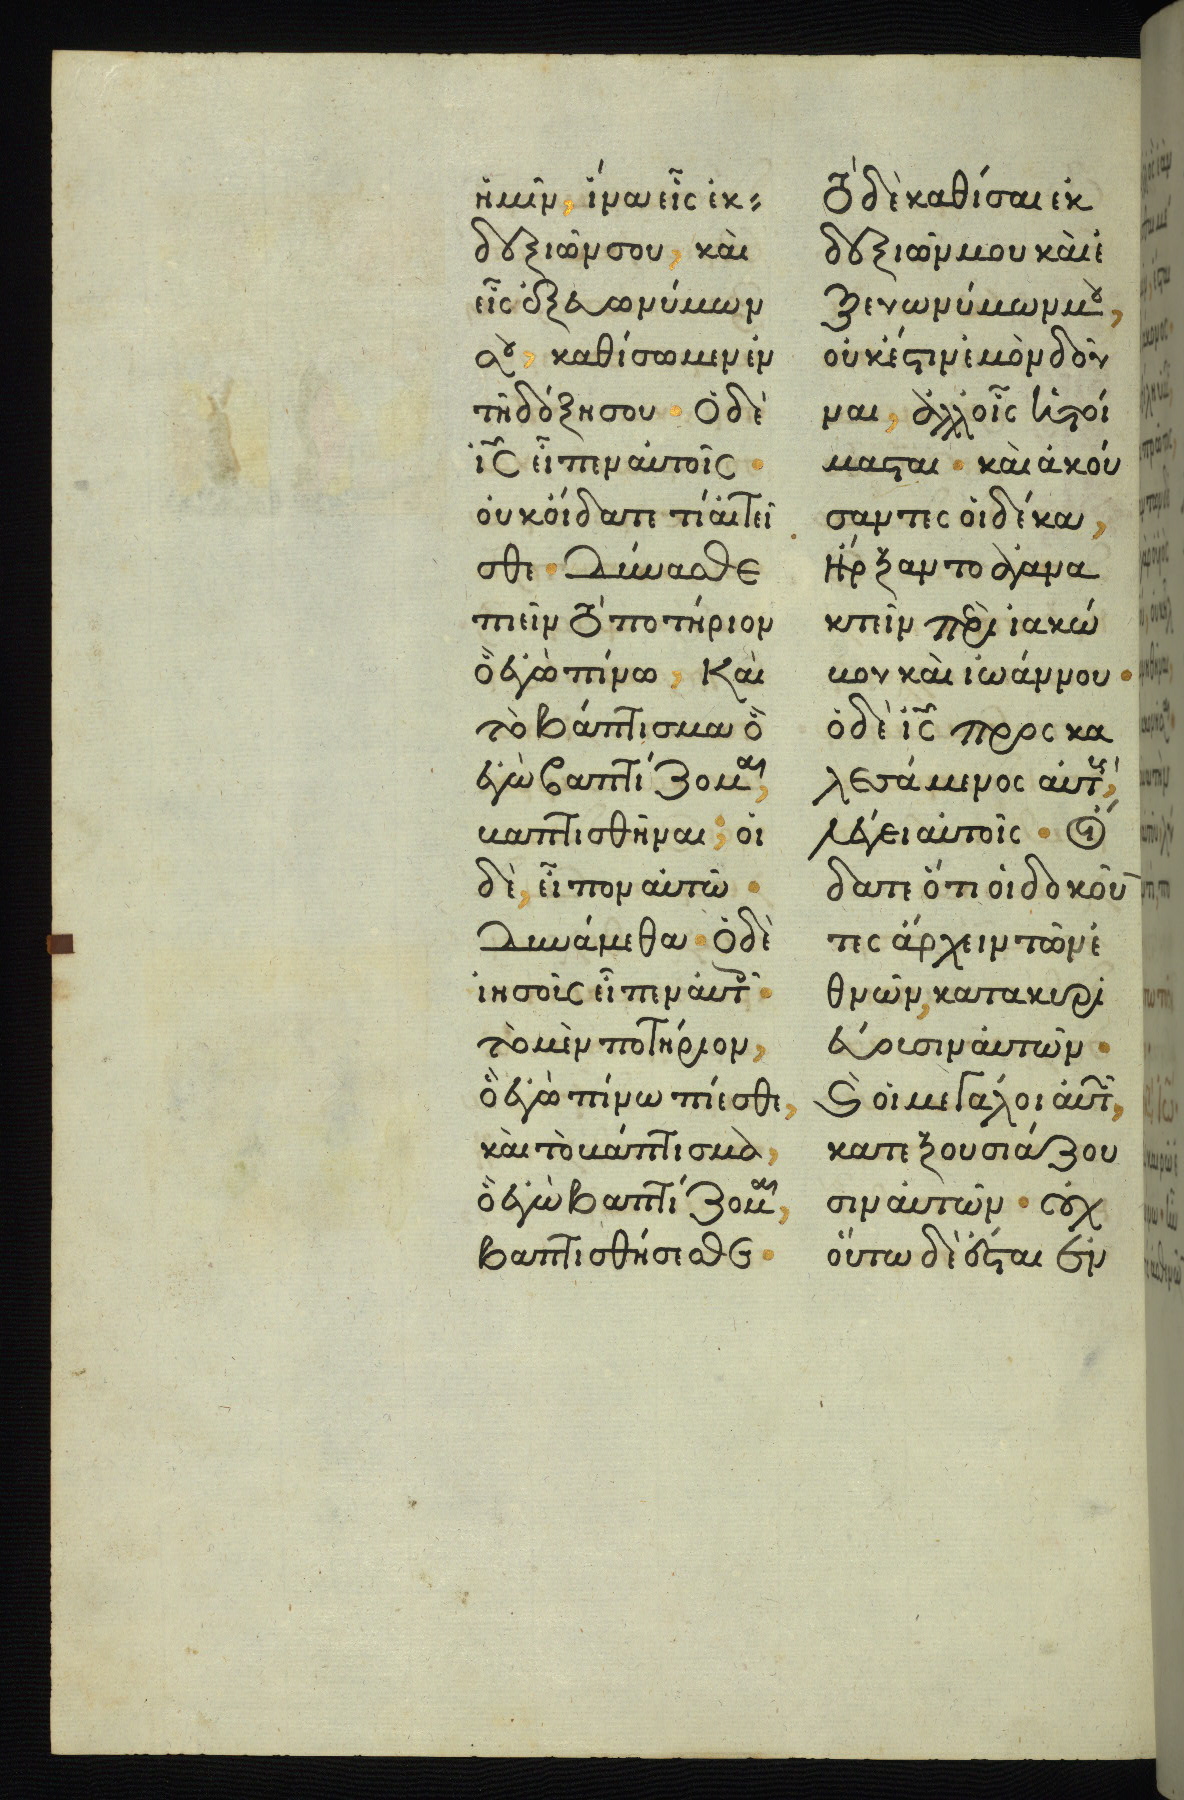 ἡμῖν, ἵνα εἷς ἐκ
δεξιῶν σου, καὶ
εἷς ἐξ εὐωνύμων
σου, καθίσωμεν ἐν
τῇ δόξῃ σου. Ὁ δὲ
ἰς εἶπεν αὐτοῖς.
οὐκ οἴδατε τί αἰτεῖ
σθε. Δύνασθε
πιεῖν τὸ ποτήριον
ὃ ἐγὼ πίνω, Καὶ
τὸ βάπτισμα ὃ
ἐγὼ βαπτίζομαι,
βαπτισθῆναι; οἱ
δὲ, εἶπον αὐτῶ.
Δυνάμεθα. Ὁ δὲ
ἰησοῦς εἶπεν αὐτοῖς.
τὸ μὲν ποτήριον,
ὃ ἐγὼ πίνω πίεσθε,
καὶ τὸ βάπτισμα,
ὃ ἐγὼ βαπτίζομαι,
βαπτισθήσεσθε.
Τὸ δὲ καθίσαι ἐκ
δεξιῶν μου καὶ ἐ
ξ εὐωνύμων μου,
οὐκ ἔστιν ἐμὸν δοῦ
ναι, ἀλλ οἷς ἡτοί
μασται. καὶ ἀκού
σαντες οἱ δέκα,
ἤρξαντο ἀγανα
κτεῖν περὶ ἰακώ
βου καὶ ἰωάννου.
ὁ δὲ ἰς προσκα
λεσάμενος αὐτοὺς,
λέγει αὐτοῖς. Οἴ
δατε ὅτι οἱ δοκοῦν
τες ἄρχειν τῶν ἐ
θνῶν, κατακυρι
εύουσιν αὐτῶν.
καὶ οἱ μεγάλοι αὐτῶν,
κατεξουσιάζου
σιν αὐτῶν. οὐχ
οὕτω δὲ ἔσται ἐν